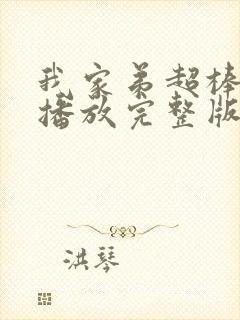 我家弟超棒
播放完整版
洪琴